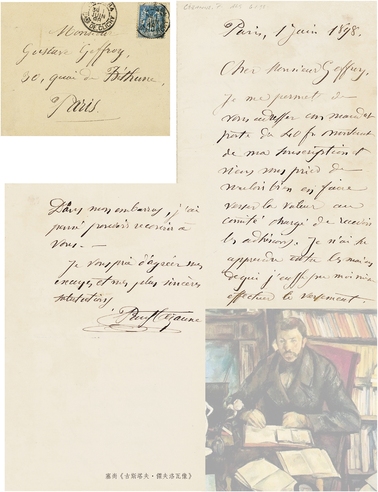 Monsieur
Gustave Geffroy,
30, quai de Béthune,
Paris
Paris, 1 juin 1898.
Cher Monsieur Geffroy,
Je me permet de
vous adresser un mandat
poste de 40 fr montant
de ma souscription et
viens vous prier de
vouloir bien en faire
verser la valeur au
comité chargé de recevoir
les adhésions. Je n'ai pu
apprendre entre les mains
de qui j'aurais pu moi-même
effectuer le versement.
Dans mon embarras, j'ai
pensé pouvoir recourir à
vous.—
Je vous prie d'agréer mes
excuses et mes plus sincères
salutations
Paul Cezanne
塞尚《古斯塔夫·傑夫洛瓦像》